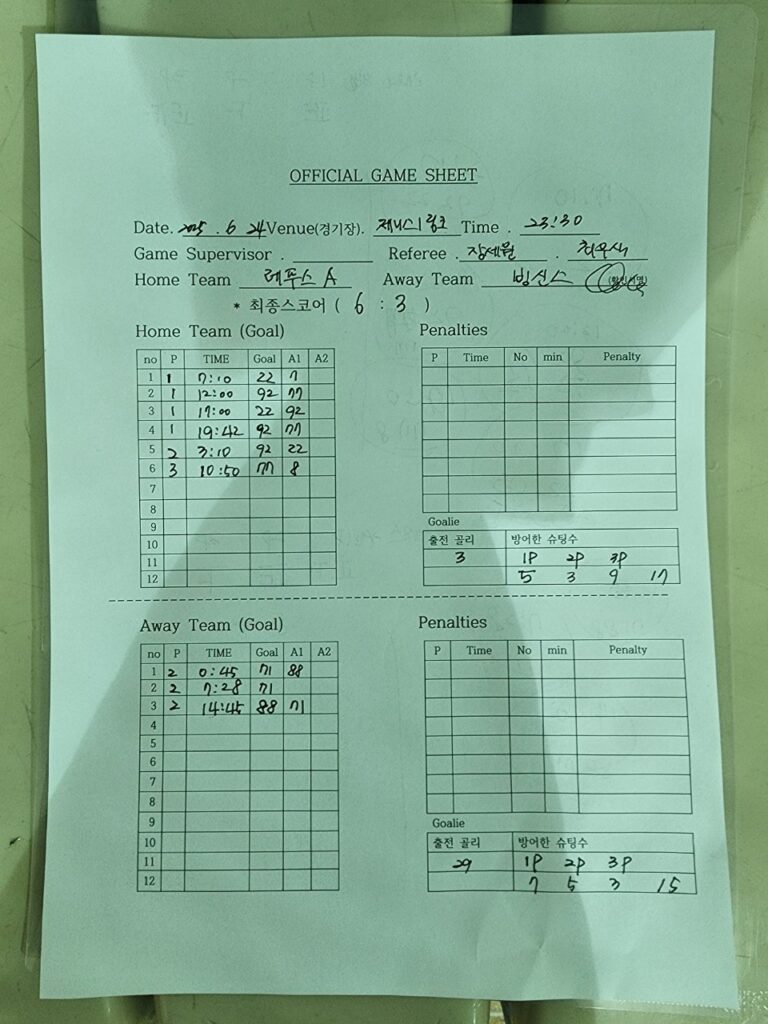 OFFICIAL GAME SHEET
Date. 2025 . 6 24 Venue(경기장). 제니스링크 Time . 23:30
Game Supervisor . Referee . 장세월 .
Home Team 레푸스 A Away Team 빙신스
* 최종스코어 ( 6 : 3 )
Home Team (Goal) Penalties
no P TIME Goal A1 A2 P Time No min Penalty
1 1 7:10 22 7
2 1 12:00 92 77
3 1 17:00 22 92
4 1 19:42 92 77
5 2 3:10 92 22
6 3 10:50 77 8
7
8
9
10
11
12
Goalie
출전 골리 방어한 슈팅수
3 1P 2P 3P
5 3 9 17
Away Team (Goal) Penalties
no P TIME Goal A1 A2 P Time No min Penalty
1 2 0:45 71 88
2 2 7:28 71
3 2 14:45 88 71
4
5
6
7
8
9
10
11
12
Goalie
출전 골리 방어한 슈팅수
29 1P 2P 3P
7 5 3 15